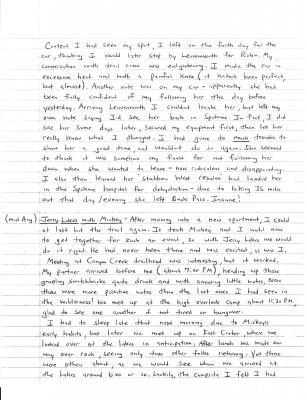 Content I had seen my spot, I left on the forth day for the
car, thinking I would later stop by Leavenworth for Robin. My
conversation with trail crew was enlightening. I made the car in
excessive heat and with a painful knee (it hadn't been perfect,
but almost). Another note was on my car - apparently she had
been fully confident of my following her the day before
yesterday. Arriving Leavenworth I couldnt locate her, but left my
own note saying I'd see her back in Spokane. In fact, I did
see her some days later, secured my equipment first, then let her
really know what I thought. I had gone to much trouble to
show her a good time, and wouldn't do so again. She seemed
to think it was somehow my fault for not following her
down when she wanted to leave - how ridiculous and disappointing.
I also then learned her stubborn resolve had landed her
in the Spokane hospital for dehydration - due to hiking 35 miles
out that day/evening she left Buck Pass. Insane!
(mid Aug.) Jerry Lakes with Mickey - After moving into a new apartment, I could
at last hit the trail again. It took Mickey and I until now
to get together for such an event, so with Jerry Lakes we would
do it right. He had never been there and was excited as was I.
Meeting at Canyon Creek trailhead was interesting, but it worked.
My partner arrived before me (about 7:00 PM), heading up those
grueling switchbacks quite drunk and with
There were more positive notes than the last ones I had seen in
the wilderness! We met up at the high overlook camp about 11:30 PM,
glad to see one another if not tired or hungover.
I had to sleep late that next morning due to Mickeys
early habits, but later we met up on Fred's Crater, where we
looked over at the lakes in anticipation. After lunch we made our
way over rock, seeing only two other folks returning. Yet there
were others about, as we would see when we arrived at
the lakes around 6:00 or so. Luckily, the campsite I felt I had